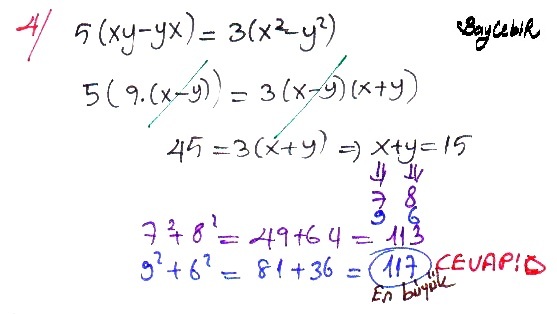 4/ 5(xy-yx) = 3(x²-y²) BayCebiR
5(9.(x-y)) = 3(x-y)(x+y)
45 = 3(x+y) ⇒ x+y = 15
⇓ ⇓
7 8
9 6
7²+8² = 49+64 = 113
9²+6² = 81+36 = 117 CEVAP:D
En büyük